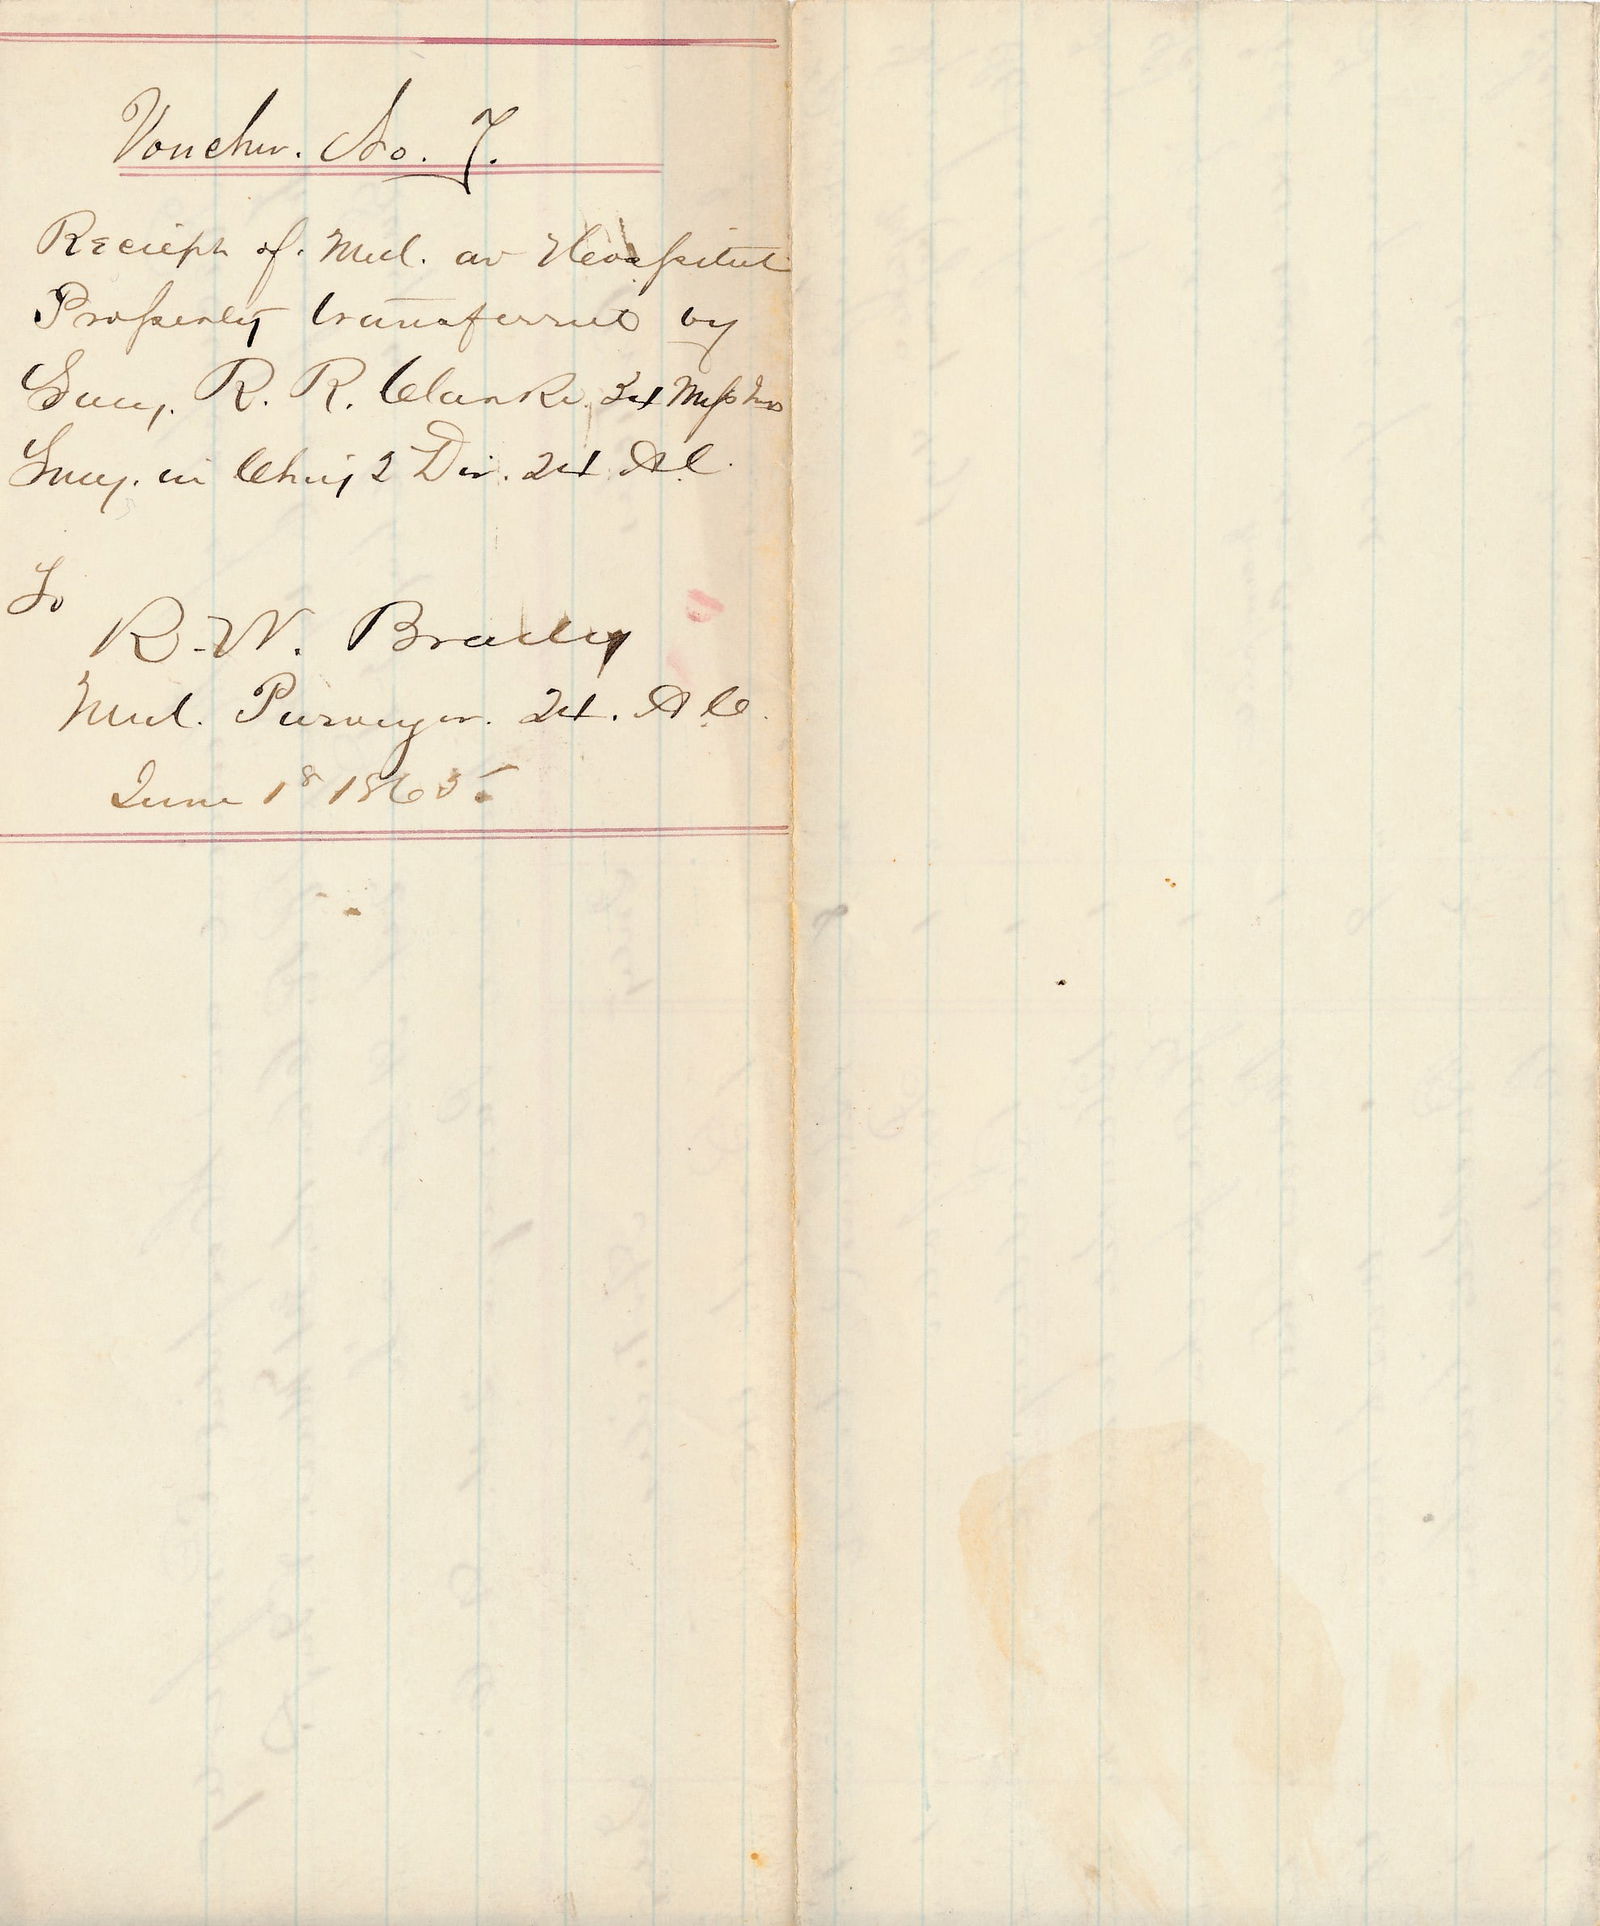 Voucher. No. 7.
Reciept of. Med. av Hosspital
Property transferred by
Surg. R. R. Clarke. 34 Mass Inf
Surg. in Chrg 2 Div. 24 A.C.
To
R. W. Brady
Med. Purveyor. 24. A.C.
June 18 1865.